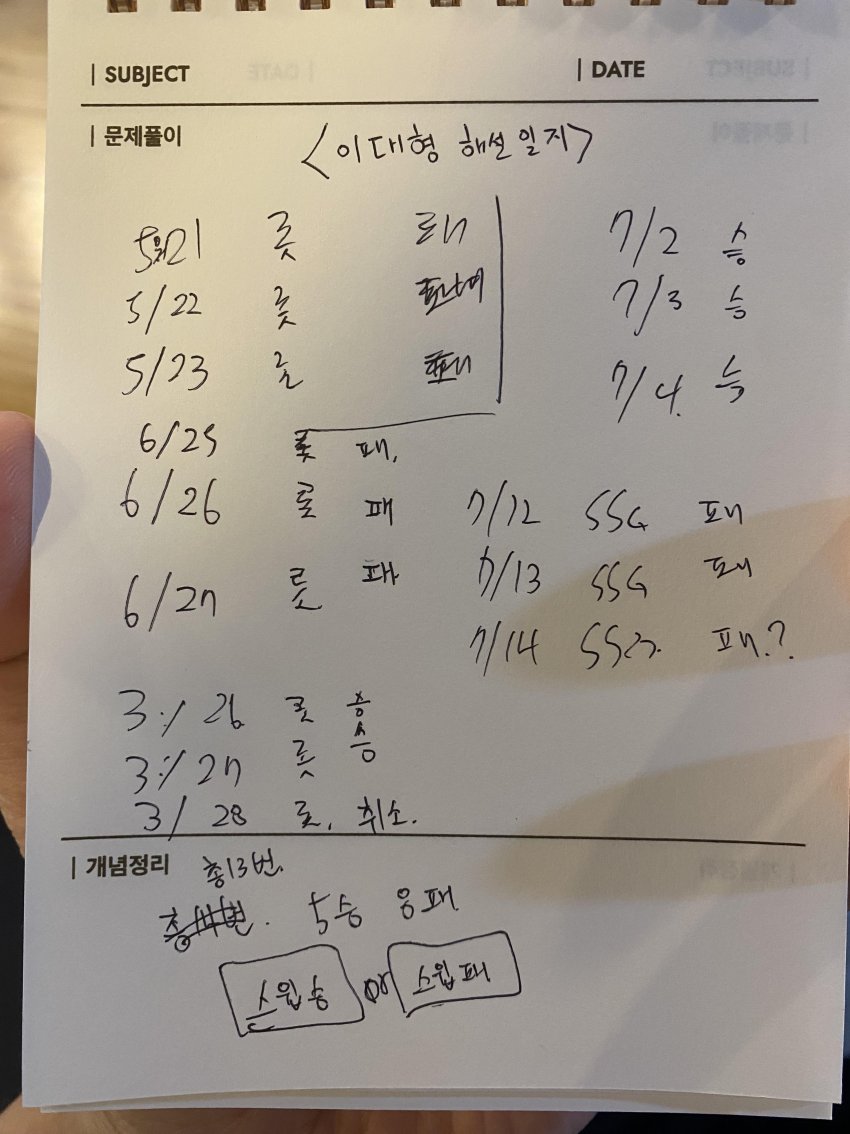 SUBJECT
DATE
문제풀이
<이대형 해설일지>
5/21 롯 패
5/22 롯
5/23 롯 패
6/25 롯 패,
6/26 롯 패
6/27 롯 패
3/26 롯 승
3/27 롯 승
3/28 롯, 취소.
7/2 승
7/3 승
7/4. 승
7/12 SSG 패
7/13 SSG 패
7/14 SSG 패.?
개념정리
총13번.
5승 패
스윕승 or 스윕패